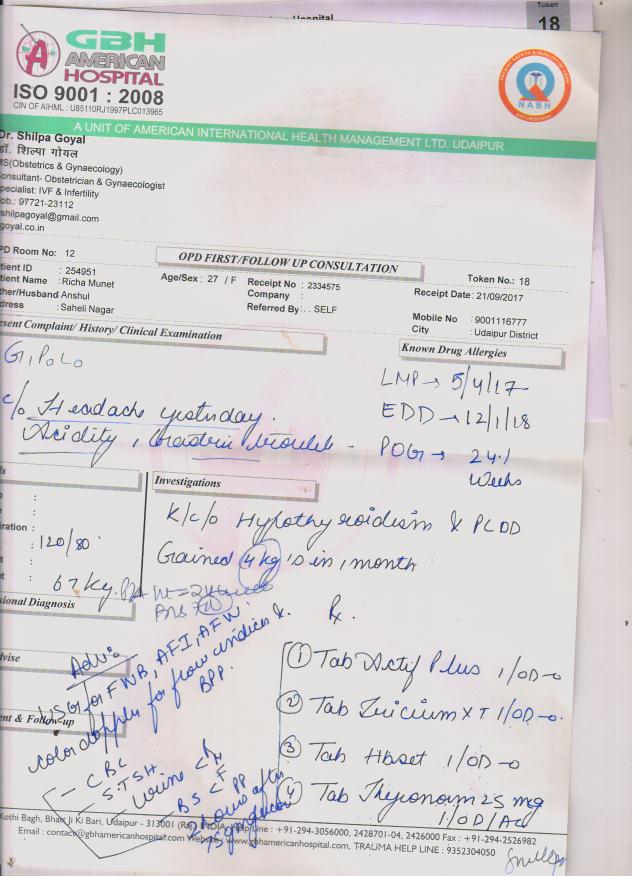 Hospital
Token
18
GBH
AMERICAN
HOSPITAL
ISO 9001 : 2008
CIN OF AIHML : U85110RJ1997PLC013965
NABH
A UNIT OF AMERICAN INTERNATIONAL HEALTH MANAGEMENT LTD. UDAIPUR
Dr. Shilpa Goyal
डॉ. शिल्पा गोयल
MS(Obstetrics & Gynaecology)
Consultant- Obstetrician & Gynaecologist
Specialist: IVF & Infertility
Mob.: 97721-23112
shilpagoyal@gmail.com
goyal.co.in
PD Room No: 12
OPD FIRST/FOLLOW UP CONSULTATION
Token No.: 18
tient ID : 254951
Age/Sex: 27 / F
Receipt No : 2334575
Receipt Date: 21/09/2017
tient Name : Richa Munet
Company :
ther/Husband Anshul
Referred By: . SELF
Mobile No : 9001116777
dress : Saheli Nagar
City : Udaipur District
esent Complaint/ History/ Clinical Examination
Known Drug Allergies
G1P0L0
LMP → 5/4/17
c/o Headache yesterday.
EDD → 12/1/18
Acidity,
POG → 24.1
Weeks
Investigations
K/c/o Hypothyroidism & PCOD
120/80
Gained 4 kg's in 1 month
67 kg.
sional Diagnosis
Rx.
Adv:
USG for FWB, AFI, AFV.
color doppler for flow indices &
BPP.
dvise
nt & Follow-up
- CBC
- S.TSH
Urine
BS < F
PP
2 hours after
75 gm glucose
1 Tab Actif Plus 1/OD
2 Tab XT 1/OD
3 Tab Hbset 1/OD
4 Tab Thyronorm 25 mg
1/OD/AC
Kothi Bagh, Bhatt Ji Ki Bari, Udaipur - 313001 (Raj.) INDIA, Help Line : +91-294-3056000, 2428701-04, 2426000 Fax : +91-294-2526982
Email : contact@gbhamericanhospital.com Website : www.gbhamericanhospital.com, TRAUMA HELP LINE : 9352304050